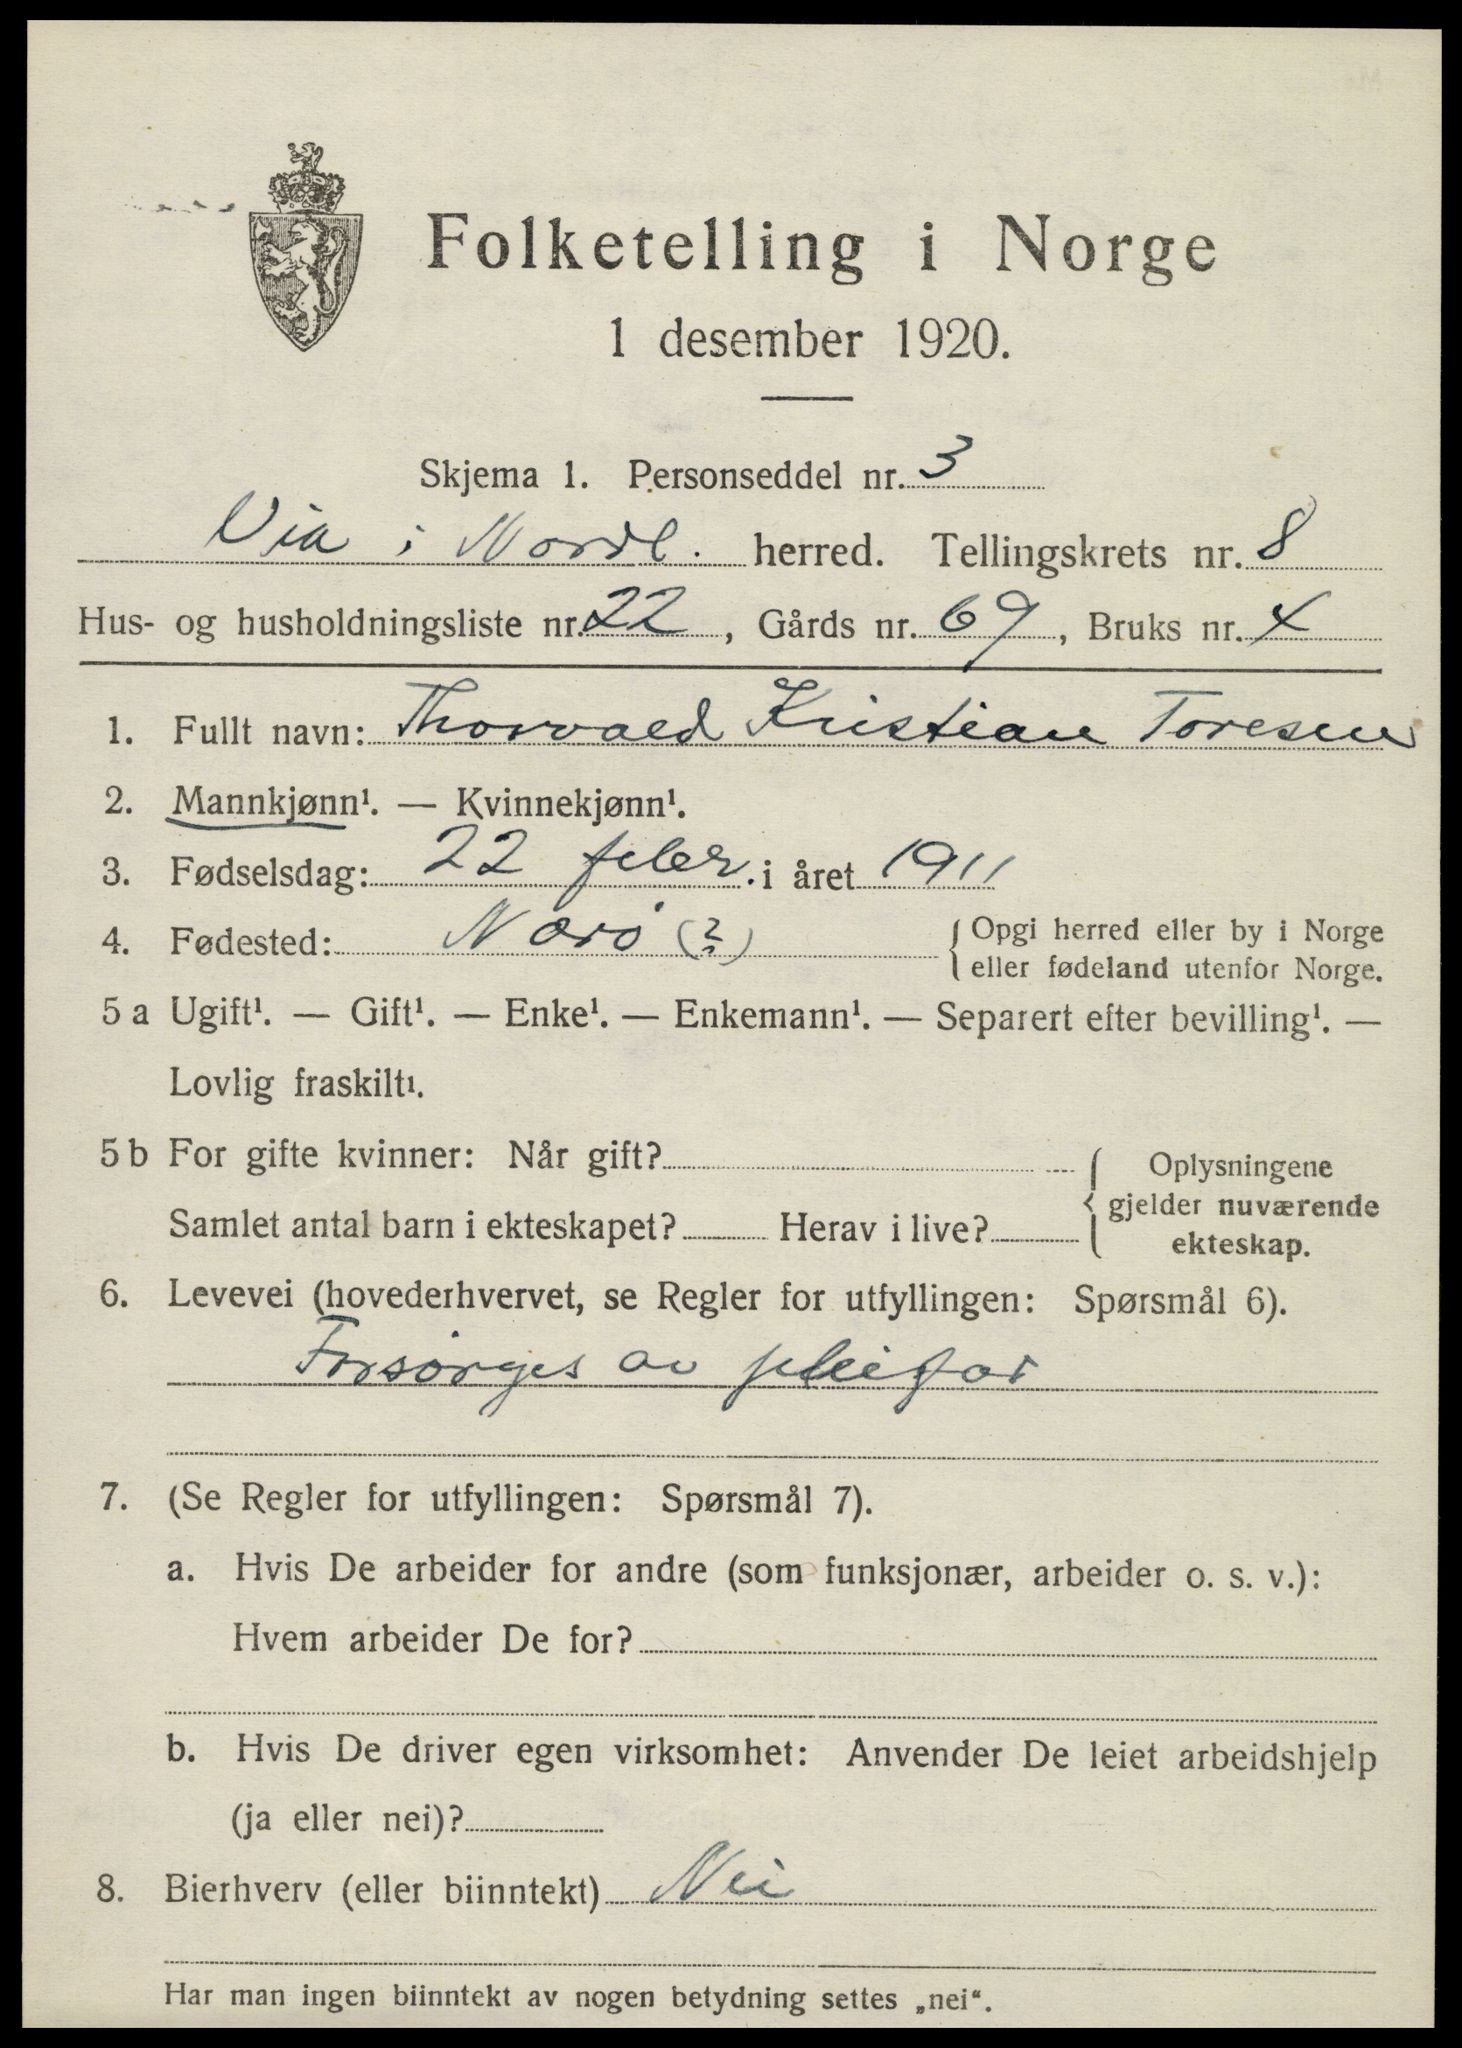 Folketelling i Norge
1 desember 1920.
Skjema 1. Personseddel nr. 3
Vik i Nordl. herred. Tellingskrets nr. 8
Hus- og husholdningsliste nr. 22, Gårds nr. 69, Bruks nr. 4
1. Fullt navn: Thorvald Kristian Toresen
2. Mannkjønn¹. — Kvinnekjønn¹.
3. Fødselsdag: 22 febr. i året 1911
4. Fødested: Nærø (?) { Opgi herred eller by i Norge
eller fødeland utenfor Norge.
5 a Ugift¹. — Gift¹. — Enke¹. — Enkemann¹. — Separert efter bevilling¹. —
Lovlig fraskilt¹.
5 b For gifte kvinner: Når gift? { Oplysningene
gjelder nuværende
ekteskap.
Samlet antal barn i ekteskapet? Herav i live?
6. Levevei (hovederhvervet, se Regler for utfyllingen: Spørsmål 6).
Forsørges av pleifar
7. (Se Regler for utfyllingen: Spørsmål 7).
a. Hvis De arbeider for andre (som funksjonær, arbeider o. s. v.):
Hvem arbeider De for?
b. Hvis De driver egen virksomhet: Anvender De leiet arbeidshjelp
(ja eller nei)?
8. Bierhverv (eller biinntekt) Nei
Har man ingen biinntekt av nogen betydning settes „nei“.